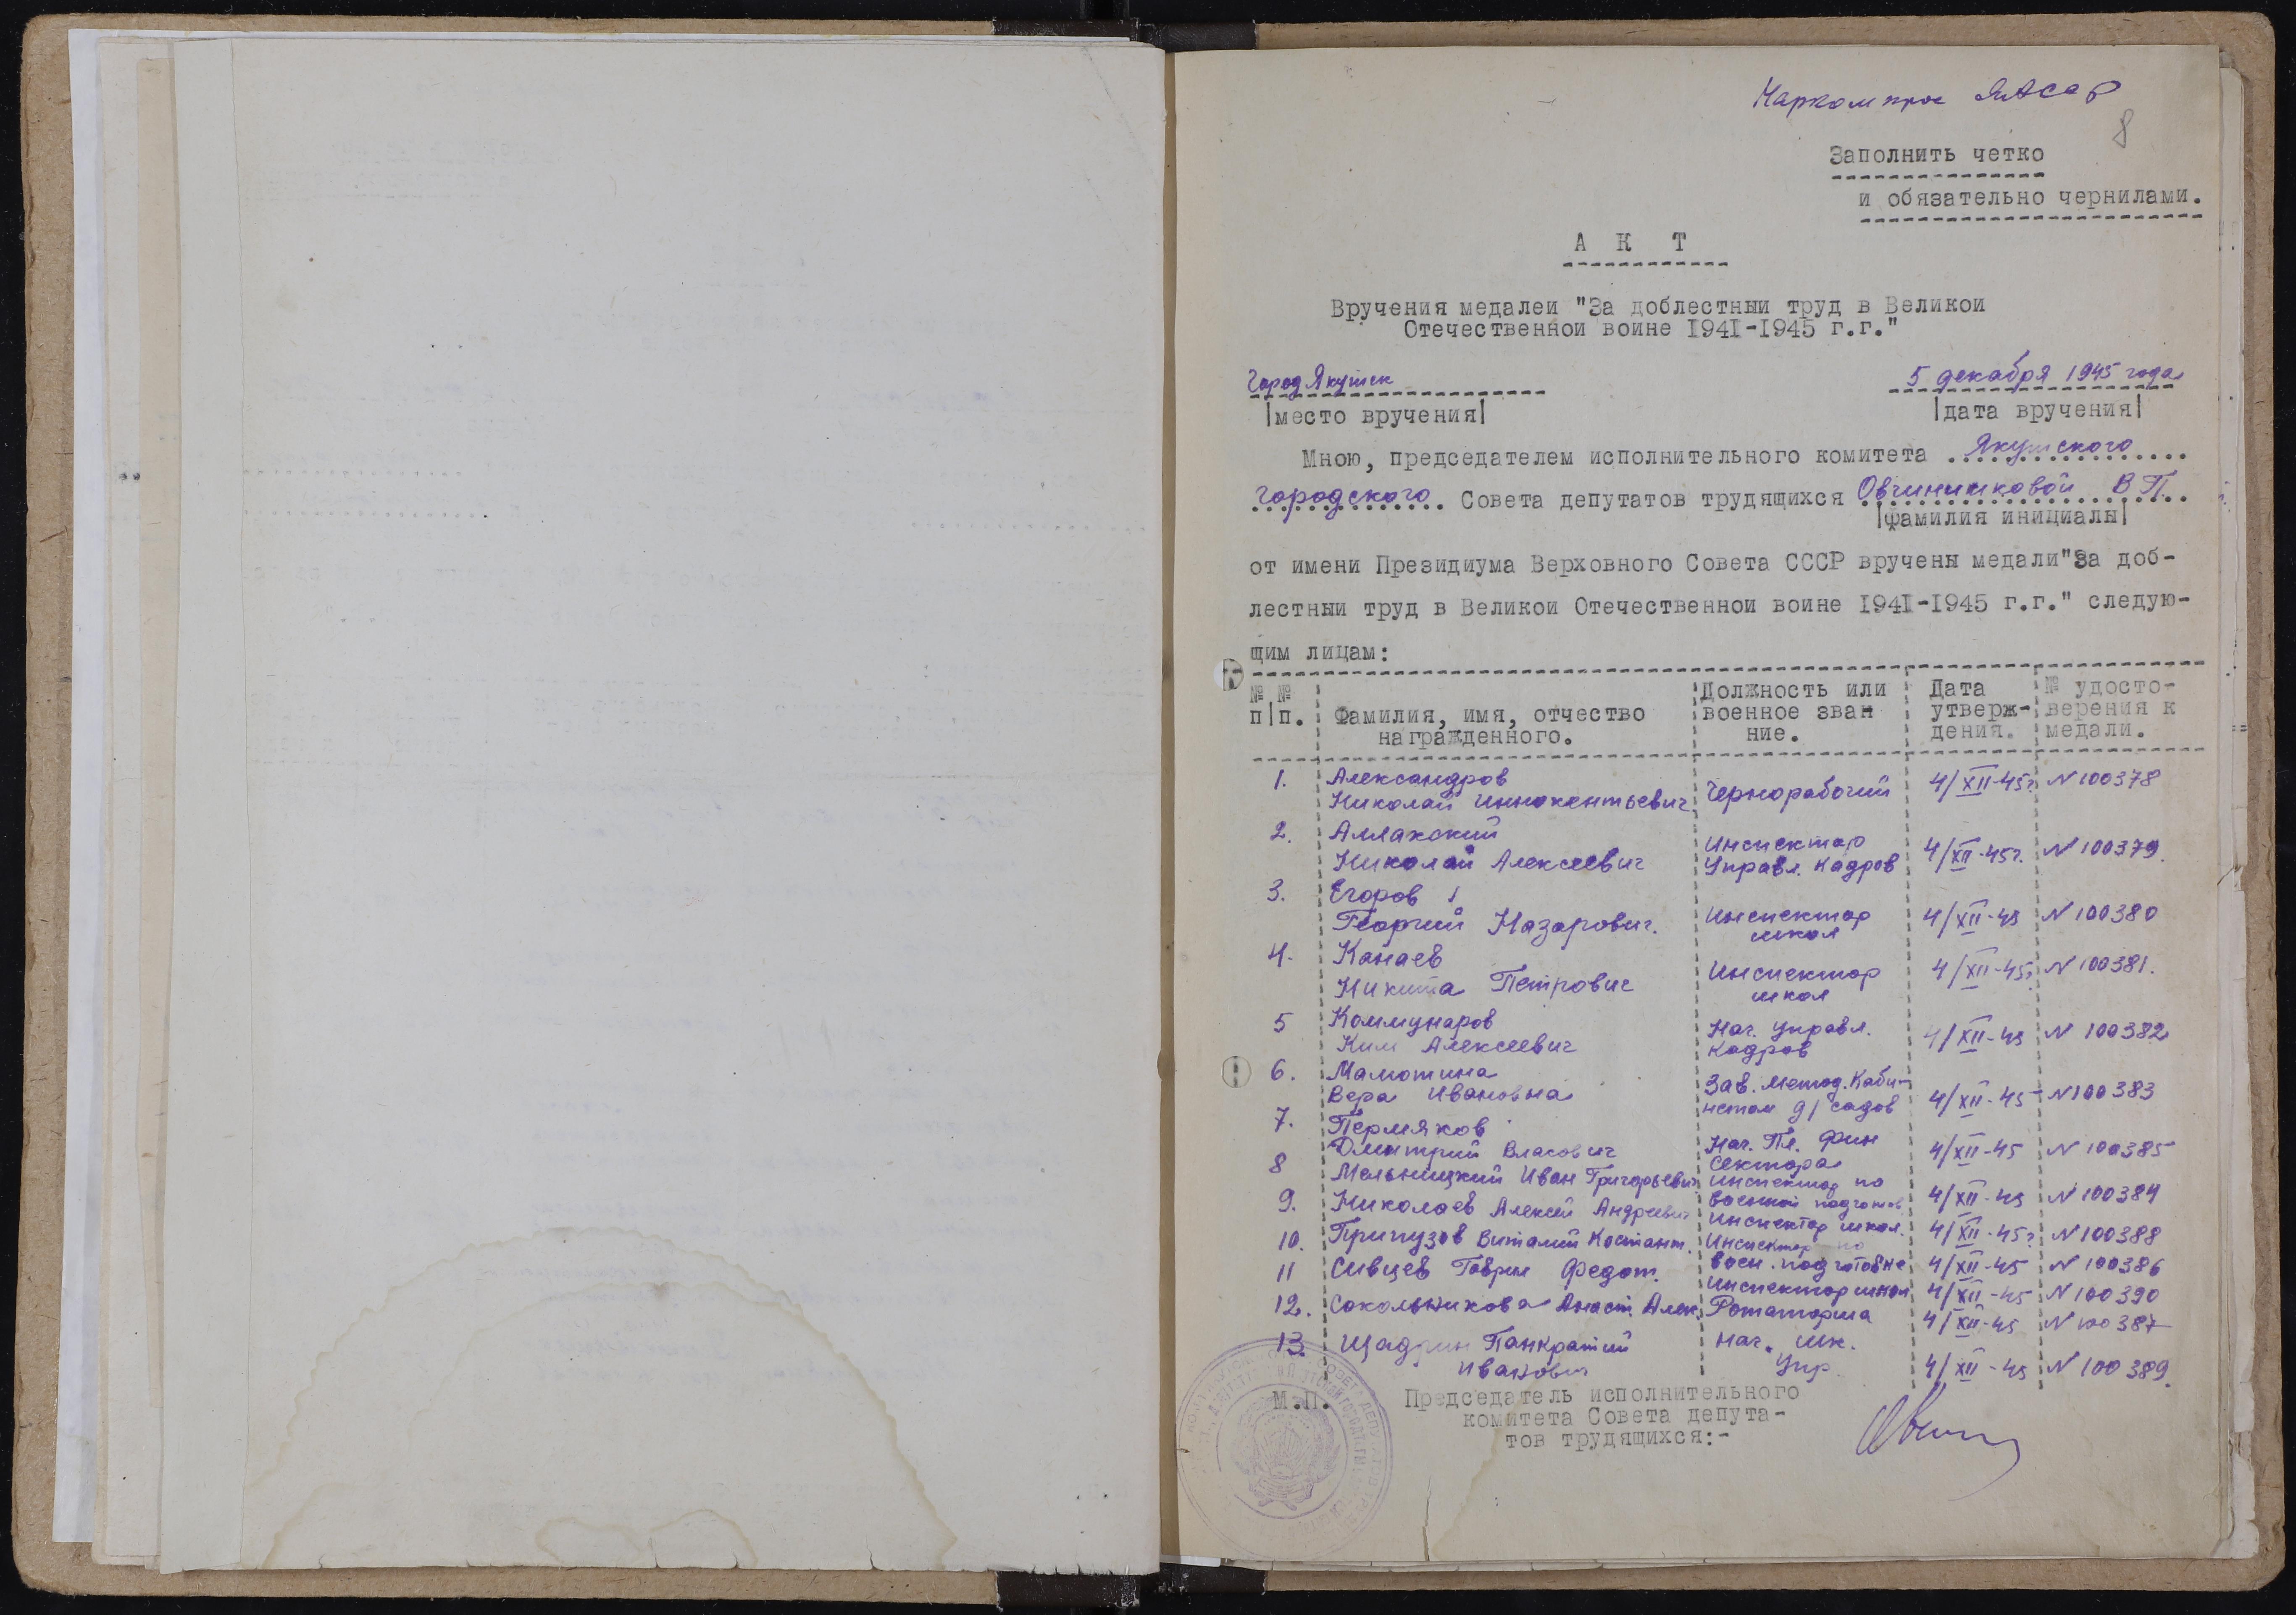 Наркомпрос ЯАССР
8
Заполнить четко
и обязательно чернилами.
А К Т
Вручения медалеи "За доблестныи труд в Великои
Отечественнои воине 1941-1945 г.г."
Город Якутск
5 декабря 1945 года
|место вручения|
|дата вручения|
Мною, председателем исполнительного комитета Якутского
городского Совета депутатов трудящихся Овчинниковой В П.
|фамилия инициалы|
от имени Президиума Верховного Совета СССР вручены медали "За доб-
лестныи труд в Великои Отечественнои воине 1941-1945 г.г." следую-
щим лицам:
№ № п|п. Фамилия, имя, отчество награжденного. Должность или военное зван ние. Дата утверж-дения. № удосто-верения к медали.
1. Александров
Николай Иннокентьевич Чернорабочий 4/XII-45г. N 100378
2. Аллахский Инспектор
Николай Алексеевич Управл. Кадров 4/XII-45г. N 100379.
3. Егоров
Георгий Назарович. Инспектор школ 4/XII-45 N 100380
4. Канаев
Никита Петрович Инспектор школ 4/XII-45г. N 100381.
5 Коммунаров Нач. Управл.
Ким Алексеевич Кадров 4/XII-45 N 100382
6. Мамотина Зав. метод. Каби-
Вера Ивановна нетом д/садов 4/XII-45 N 100383
7. Пермяков
Дмитрий Власович Нач. Пл. Фин Сектора 4/XII-45 N 100385
8 Мельницкий Иван Григорьевич Инспектор по военной подготов. 4/XII-45 N 100384
9. Николаев Алексей Андреевич Инспектор школ. 4/XII-45г. N 100388
10. Припузов Виталий Костант. Инспектор по воен. подготовке 4/XII-45 N 100386
11 Сивцев Гаврил Федот. Инспектор школ 4/XII-45 N 100390
12. Сокольникова Анаст. Алек. Ротаторша 4/XII-45 N 100387
13. Щадрин Панкратий Нач. шк.
Иванович Упр. 4/XII-45 N 100389.
М.П. Председатель исполнительного
комитета Совета депута-
тов трудящихся:-